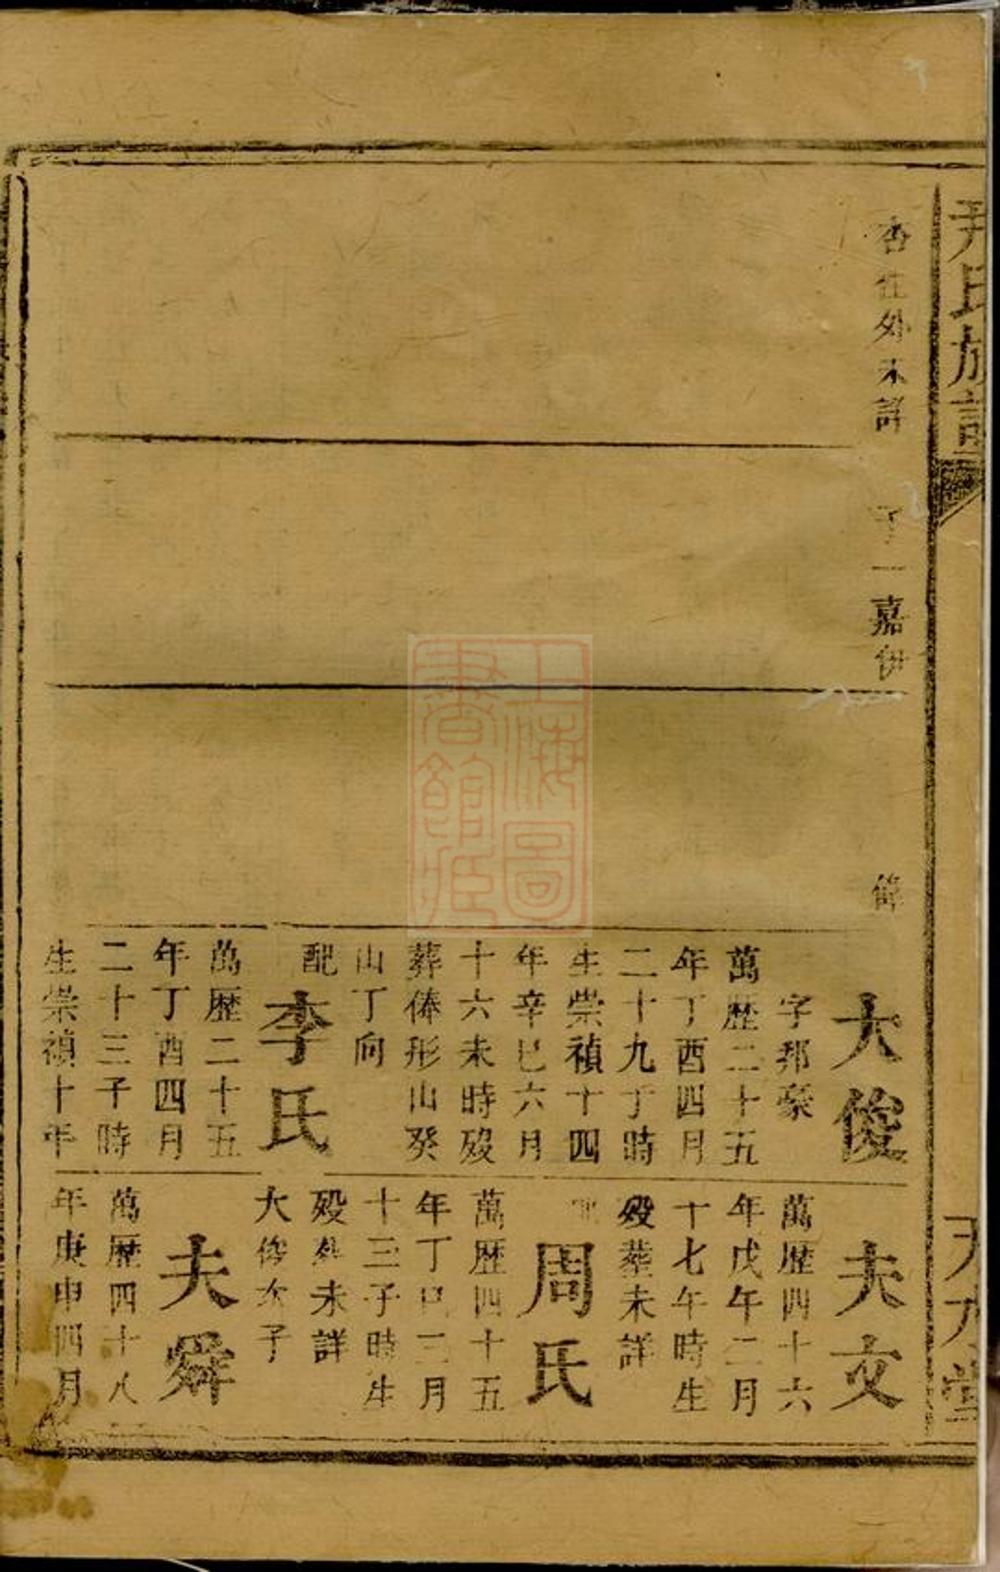 尹氏族譜
天水堂
杏往外未詳
子一嘉伊
俊
大俊
字邦豪
萬歷二十五
年丁酉四月
二十九子時
生崇禎十四
年辛巳六月
十六未時歿
葬俸形山癸
山丁向
配
李氏
萬歷二十五
年丁酉四月
二十三子時
生崇禎十年
夫文
萬歷四十六
年戊午二月
十七午時生
歿葬未詳
周氏
萬歷四十五
年丁巳三月
十三子時生
歿葬未詳
大俊次子
夫舜
萬歷四十八
年庚申四月
上海圖
書館藏